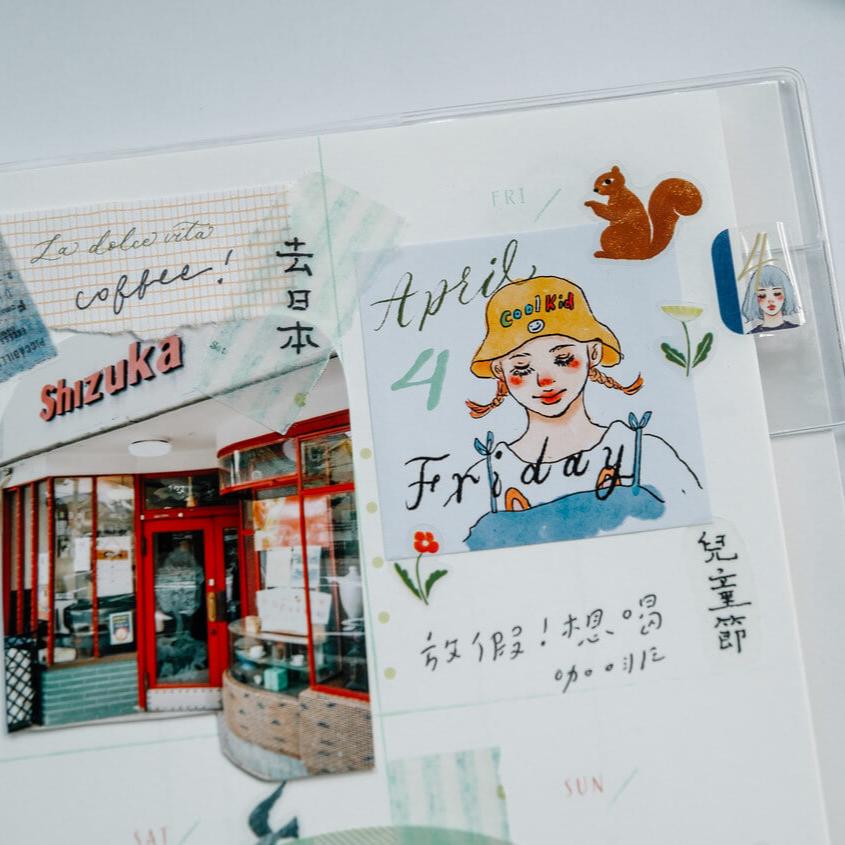 La dolce vita
coffee!
去日本
Shizuka
FRI
April
Cool Kid
4
Friday
4
兒童節
放假!想喝
咖啡
SAT
SUN